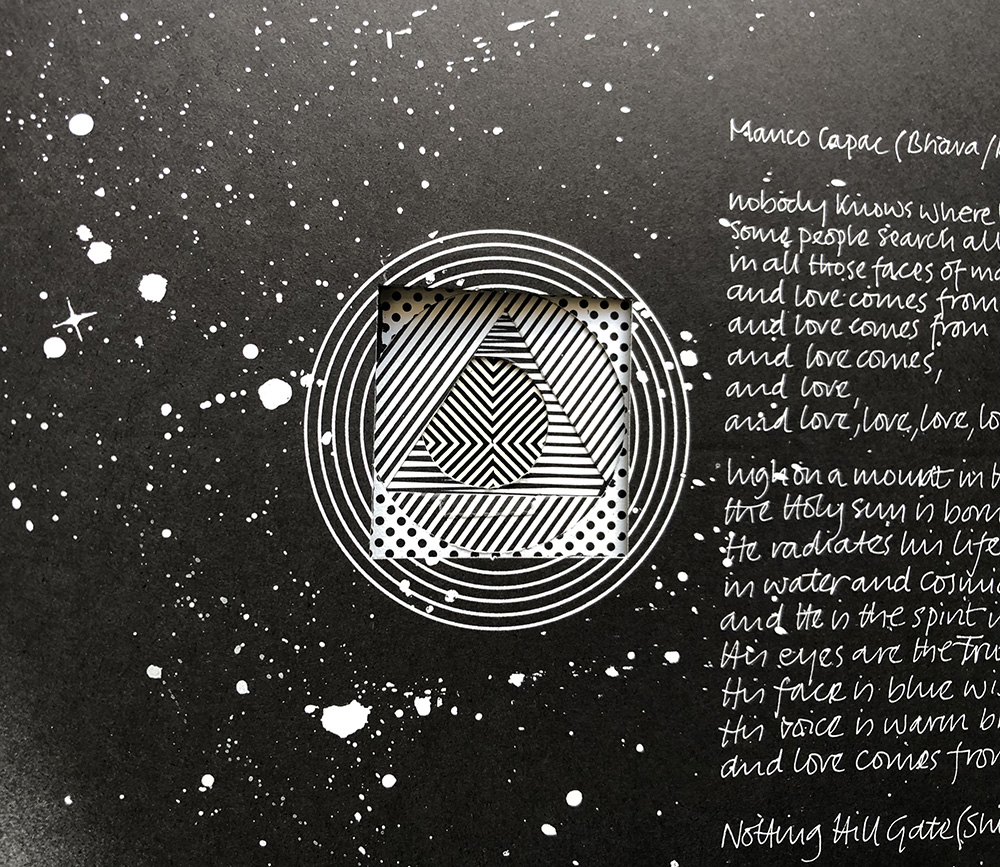 Manco Capac (Bhava/
nobody knows where
some people search all
in all those faces of
and love comes from
and love comes from
and love comes,
and love,
and love, love, love,
high on a mount in
the Holy Sun is born
He radiates his life
in water and cosmic
and He is the spirit
His eyes are the
His face is blue
His voice is warm
and love comes from
Notting Hill Gate (